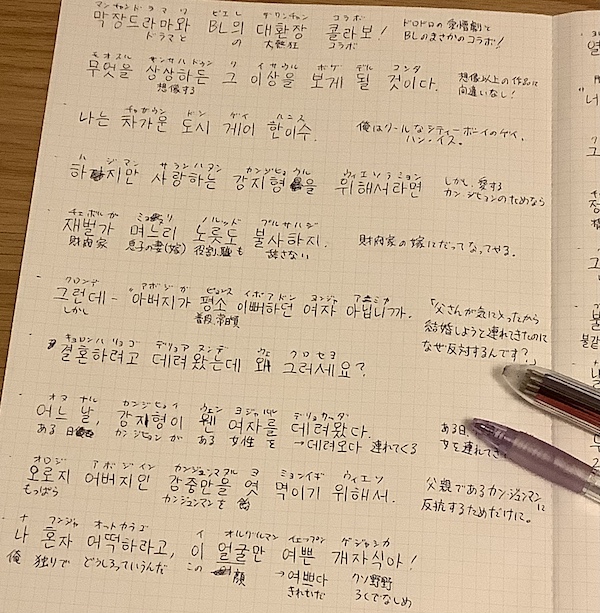 マンチャンドラマワ ビエレ デファンチャン コラボ
막장드라마와 BL의 대환장 콜라보!
ドラマと の 大熱狂 コラボ
ドロドロの愛憎劇と
BLのまさかのコラボ!
モオスル サンサハドゥン ク イサウル ボゲ デル コンダ
무엇을 상상하든 그 이상을 보게 될 것이다.
想像する
想像以上の作品に
間違いなし!
チャガウン ドシ ゲイ ハニス
나는 차가운 도시 게이 한이수.
俺はクールなシティーボーイのゲイ、
ハン・イス。
ハジマン サランハヌン カンジヒョウル ウィエソラミョン
하지만 사랑하는 강지형을 위해서라면
しかし、愛する
カンジヒョンのためなら
チェボルガ ミョヌリ ノルッド ブルサハジ
재벌가 며느리 노릇도 불사하지.
財閥家 息子の妻(嫁) 役割、職も 辞さない
財閥家の嫁にだってなってやる。
クロンデ アボジガ ピョンス イポアドン ヨンジャ アニミカ
그런데- "아버지가 평소 이뻐하던 여자 아닙니까.
しかし 普段、常日頃
「父さんが気に入ったから
結婚しようと連れてきたのに
なぜ反対するんです?」
キョロンハリョゴ デリョア ヌンデ ウェ クロセヨ
결혼하려고 데려왔는데 왜 그러세요?
オヌ ナル カンジヒョイ ウェン ヨジャルル デリョワッダ
어느 날, 강지형이 웬 여자를 데려왔다.
ある 日 カンジヒョンが ある 女性を →데려오다 連れてくる
ある日、
女を連れてき
オロジ アボジイン カンジュンマヌル ヨ ミョンイギ ウィエソ
오로지 어버지인 강중만을 엿 먹이기 위해서.
もっぱら カンジュンマンを 飴
父親であるカンジュンマンに
反抗するためだけに。
ナ フンジャ オットカラゴ イ オルグルマン イェップン ゲジャシカ
나 혼자 어떡하라고, 이 얼굴만 예쁜 개자식아!
俺 独りで どうしろっていうんだ この 顔 →예쁘다 クソ野郎
きれいだ ろくでなしめ